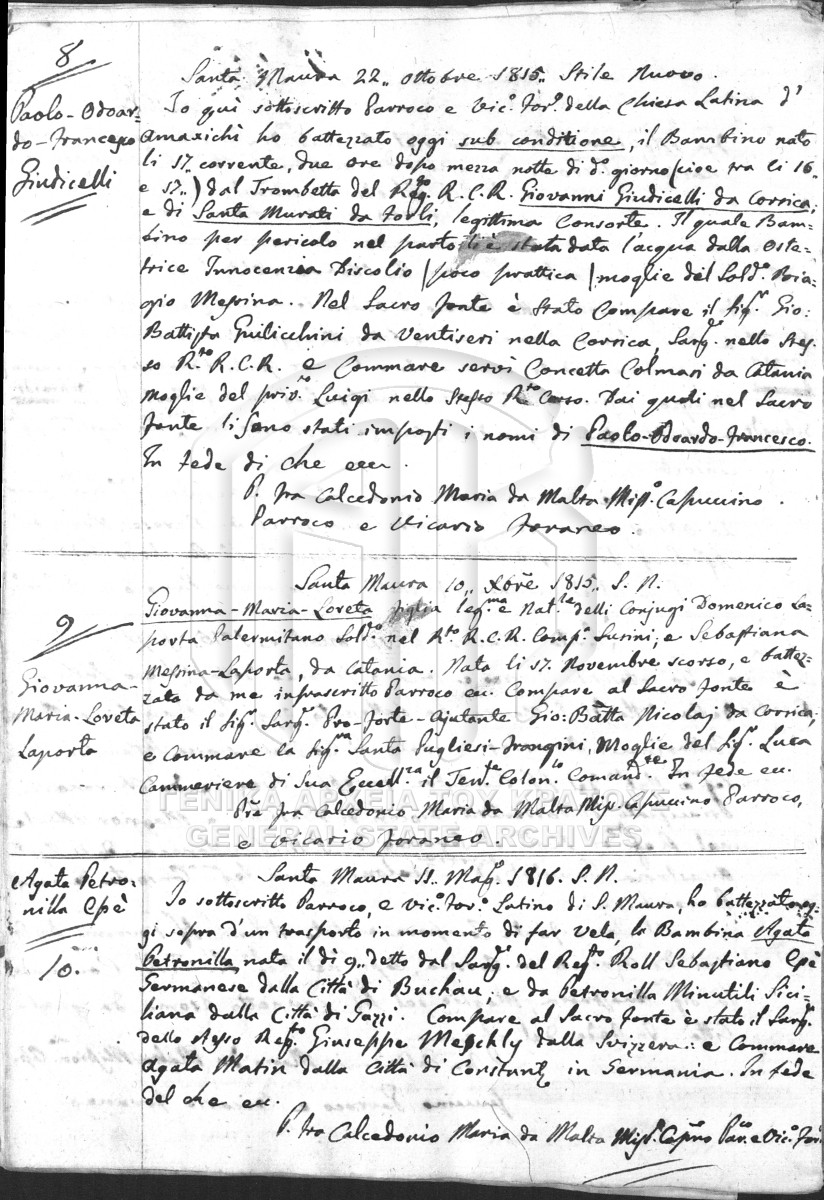 8
Paolo-Odoar-
do-Francesco
Giudicelli
Santa Maura 22,, ottobre 1815,, Stile Nuovo.
Io quì sottoscritto Parroco e Vic.o For.o della Chiesa Latina d'
Amaxichi ho battezzato oggi sub conditione, il Bambino nato
li 17,, corrente, due ore dopo mezza notte di d.o giorno (cioe tra li 16,,
e 17,,) dal Trombetta del Reg.to R. C. R. Giovanni Giudicelli da Corsica,
e di Santa Murati da Forlì, legittima Consorte. Il quale Bam-
bino per pericolo nel parto li è stata data l'acqua dalla Oste-
trice Innocenzia Discolio (poco prattica) moglie del Sold.o Bia-
gio Messina. Nel Sacro fonte è stato Compare il Sig.r Gio:
Battista Guilicchini da Ventiseri nella Corsica, Sarg.e nello stes-
so R.to R. C. R. e Commare servì Concetta Colmasi da Catania
moglie del priv.o Luigi nello stesso R.to Corso. Dai quali nel Sacro
fonte li sono stati imposti i nomi di Paolo-Odoardo-Francesco.
In fede di che ecc.
P. fra Calcedonio Maria da Malta Miss.o Capuccino
Parroco e Vicario Foraneo.
9
Giovanna-
Maria-Loreta
Laporta
Santa Maura 10,, Xbre 1815,, S. N.
Giovanna-Maria-Loreta figlia leg.ma e Nat.le delli Conjugi Domenico La-
porta Palermitano Sold.o nel R.to R. C. R. Comp.a Susini, e Sebastiana
Messina-Laporta, da Catania. Nata li 17. Novembre scorso, e battez-
zata da me infrascritto Parroco ec. Compare al Sacro fonte è
stato il Sig.r Sarg.e Pro-forte-Ajutante Gio: Batta Nicolaj da Corsica,
e Commare la Sig.ra Santa Pugliesi-Frangini, Moglie del Sig.r Luca
Cammeriere di Sua Eccell.za il Ten.te Colon.lo Comand.te. In fede ec.
Pre fra Calcedonio Maria da Malta Miss. Capuccino Parroco,
e Vicario Foraneo.
ΓΕΝΙΚΑ ΑΡΧΕΙΑ ΤΟΥ ΚΡΑΤΟΥΣ
GENERAL STATE ARCHIVES
Agata Petro-
nilla Epè
10.
Santa Maura 11,, Mag.o 1816. S. N.
Io sottoscritto Parroco, e Vic.o For.o Latino di S. Maura, ho battezzato og-
gi sopra d'un trasporto in momento di far vela, la Bambina Agata
Petronilla nata il dì 9,, detto dal Sarg.e del Reg.to Roll Sebastiano Epè
Germanese dalla Città di Buchau, e da Petronilla Minutili Sici-
liana dalla Città di Gazzi. Compare al Sacro fonte è stato il Sarg.e
dello stesso Reg.to Giuseppe Meschly dalla Svizzera: e Commare
Agata Matin dalla Città di Constantz in Germania. In fede
del che ec.
P. fra Calcedonio Maria da Malta Miss.o Capno Par.o e Vic.o For.